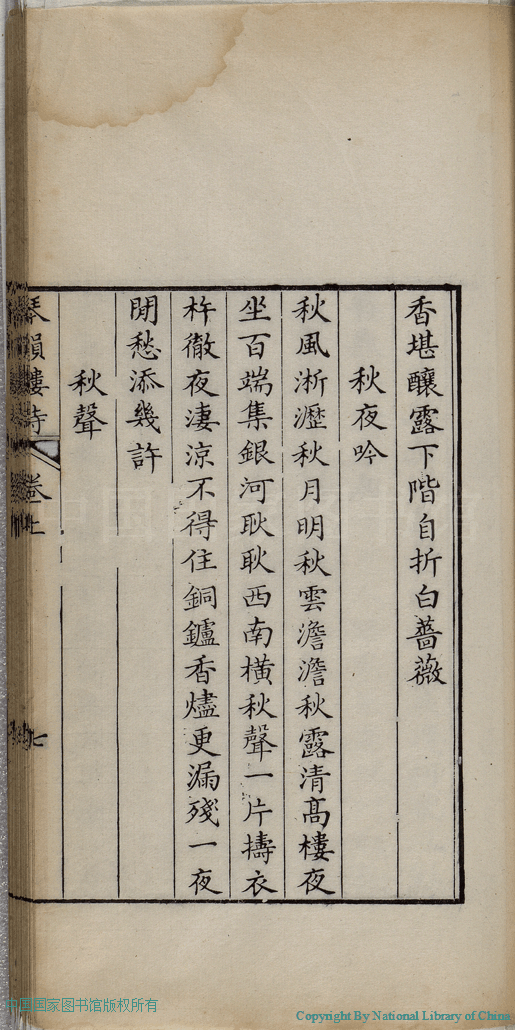 香堪釀露下階自折白薔薇
秋夜吟
秋風淅瀝秋月明秋雲澹澹秋露清髙樓夜
坐百端集銀河耿耿西南橫秋聲一片擣衣
杵徹夜淒涼不得住銅鑪香燼更漏殘一夜
閒愁添幾許
秋聲
琴韻樓詩 卷上 七
中国国家图书馆
中国国家图书馆版权所有
Copyright By National Library of China